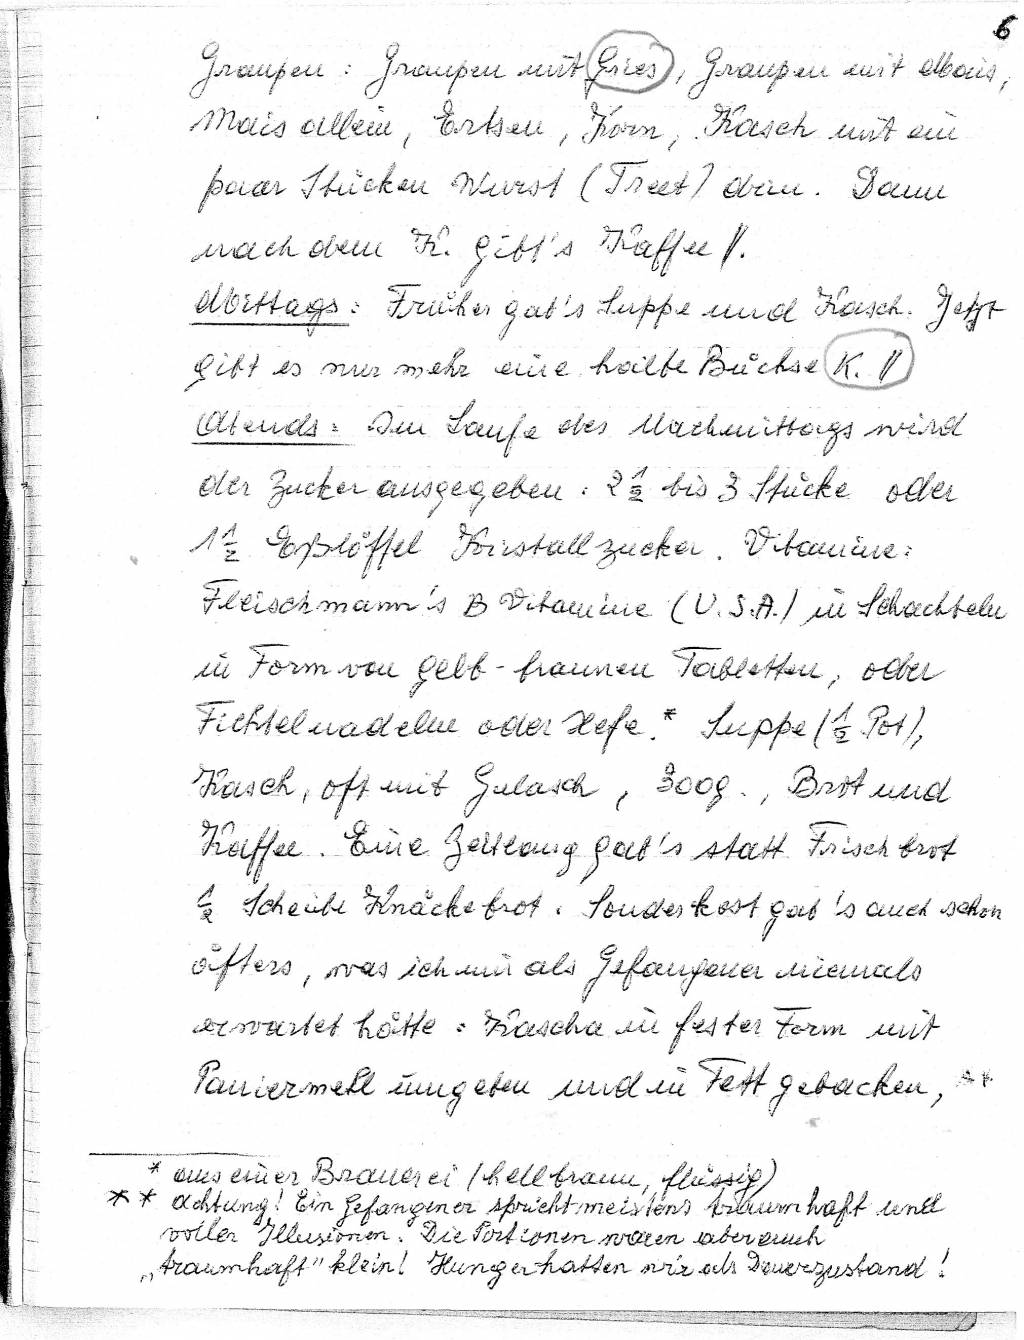 6
Graupen : Graupen mit Gries, Graupen mit Mais,
Mais allein, Erbsen, Korn, Kasch mit ein
paar Stücken Wurst (Treet) drin. Dann
nach dem K. gibt's Kaffee //.
Mittags : Früher gab's Suppe und Kasch. Jetzt
gibt es nur mehr eine halbe Büchse K. //
Abends : Im Laufe des Nachmittags wird
der Zucker ausgegeben : 2 1/2 bis 3 Stücke oder
1 1/2 Eßlöffel Kristallzucker. Vitamine:
Fleischmann's B Vitamine (U.S.A.) in Schachteln
in Form von gelb-braunen Tabletten, oder
Fichtelnadeln oder Hefe.* Suppe (1/2 Pot),
Kasch, oft mit Gulasch, 300g., Brot und
Kaffee. Eine Zeitlang gab's statt Frischbrot
1/2 Scheibe Knäckebrot. Sonderkost gab's auch schon
öfters, was ich mir als Gefangener niemals
erwartet hätte : Kascha in fester Form mit
Paniermehl umgeben und in Fett gebacken, **
* aus einer Brauerei (hellbraun, flüssig)
** Achtung! Ein Gefangener spricht meistens traumhaft und
voller Illusionen. Die Portionen waren aber auch
„traumhaft" klein! Hunger hatten wir als Dauerzustand!